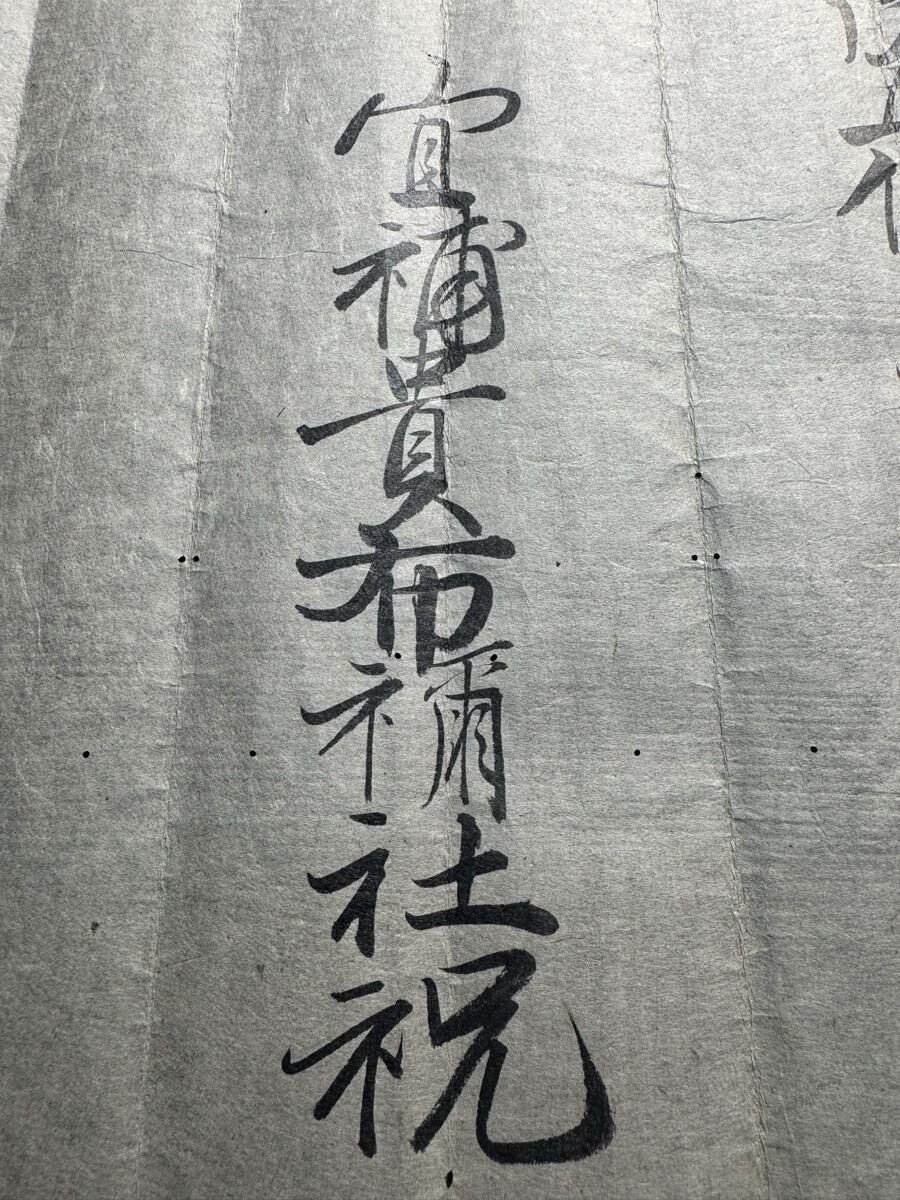 宜補貴布禰社祝